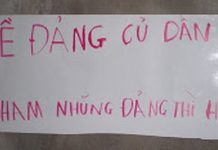 Ề ĐẢNG CỦ DÂN
HAM NHŨNG ĐẢNG THÌ H